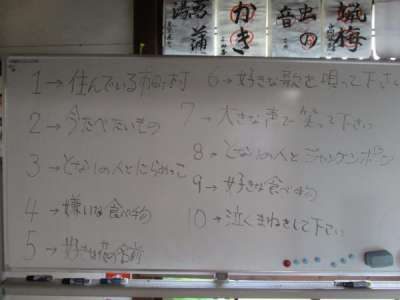 湯 菖蒲
かき
音 出の
蝋梅
1→住んでいる市町村
2→今たべたいもの
3→となりの人とにらめっこ
4→嫌いな食べ物
5→好きな花の名前
6→好きな歌を唄って下さい
7→大きな声で笑って下さい
8→となりの人とジャンケンポン
9→好きな食べ物
10→泣くまねをして下さい